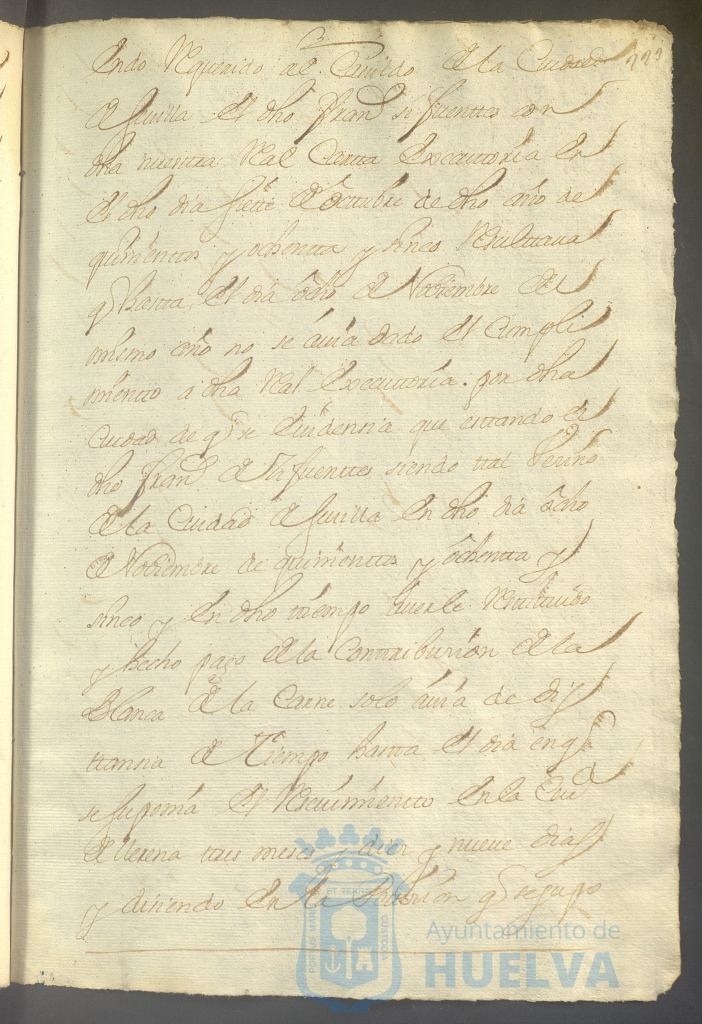 endo Requerido al Cavildo de la Ciudad
229
de sevilla el dho franco sifuentes con
dha nuestra Real Cartta Executtoria en
el dho dia siette de octtubre de dho año de
quinienttos y ochentta y sinco Resulttava
q hasta el dia ocho de Nobiembre del
mismo año no se avia dado el Cumpli
miento a dha Real Executtoria por dha
Ciudad de q se evidensia que esttando el
dho franco de sifuenttes siendo ttal Vecino
de la Ciudad de sevilla en dho dia ocho
de Nobiembre de quinienttos y ochentta y
sinco y en dho tiempo averle Resttituido
y hecho pago de la Conttribusion de la
Blanca de la Carne solo avia de dis
ttansia de Tiempo hasta el dia en q
se suponia el Resivimientto en la Ciud
de Llerena tres meses y diez y nueve dias
y disiendo en la Posesion q se supo
Ayuntamiento de
HUELVA